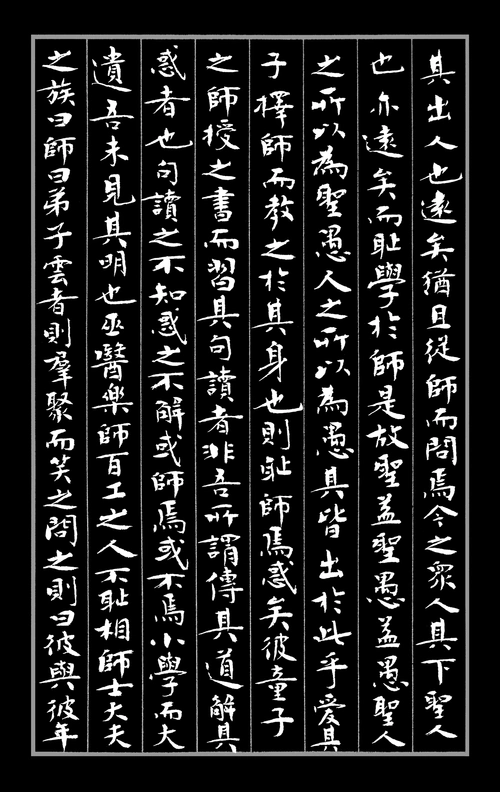 其出人也遠矣猶且從師而問焉今之衆人其下聖人
也亦遠矣而耻學於師是故聖益聖愚益愚聖人
之所以為聖愚人之所以為愚其皆出於此乎愛其
子擇師而教之於其身也則耻師焉惑矣彼童子
之師授之書而習其句讀者非吾所謂傳其道解其
惑者也句讀之不知惑之不解或師焉或不焉小學而大
遺吾未見其明也巫醫樂師百工之人不耻相師士大夫
之族曰師曰弟子雲者則羣聚而笑之問之則曰彼與彼年